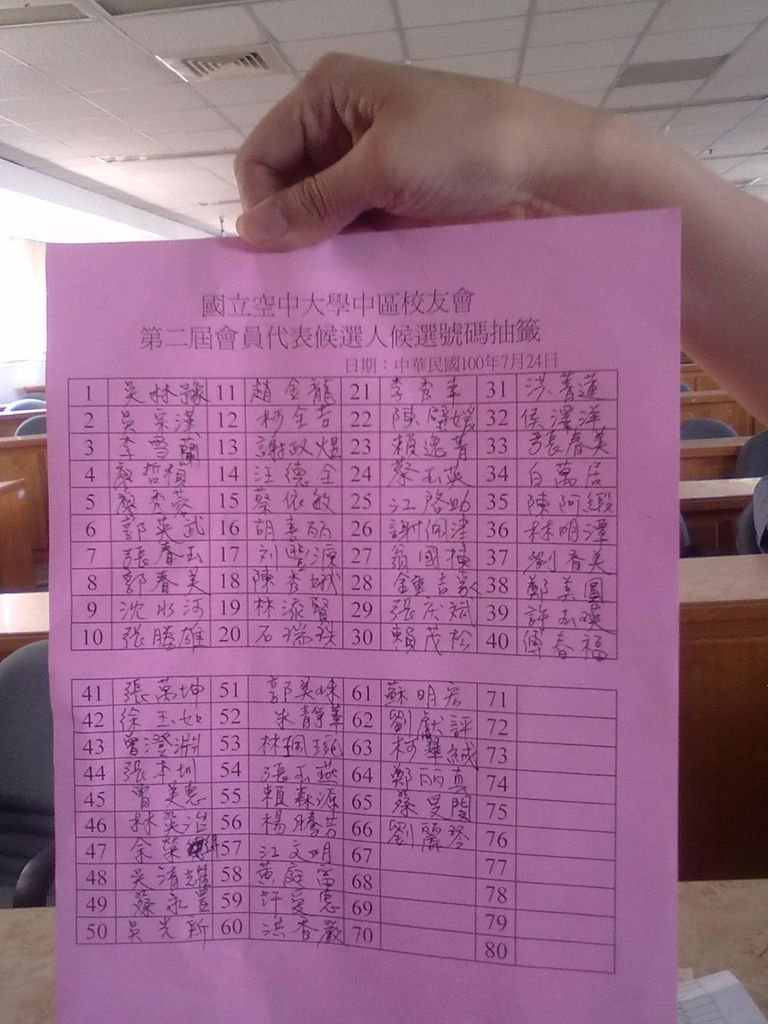 國立空中大學中區校友會
第二屆會員代表候選人候選號碼抽籤
日期：中華民國100年7月24日
1 吳林豫 11 趙金龍 21 李秀 31 洪菁蓮
2 吳宗漢 12 柯全吉 22 陳 媛 32 侯澤洋
3 李雪蘭 13 謝政煜 23 賴逸菁 33 張春美
4 廖哲楨 14 汪德全 24 蔡玉英 34 白萬居
5 廖秀蓉 15 蔡依敏 25 江啓助 35 陳阿緞
6 郭英武 16 胡惠丽 26 謝佩津 36 林明潭
7 張春玉 17 刘豐源 27 翁國棟 37 劉香美
8 郭春美 18 陳秀娥 28 鍾吉 38 鄭美圓
9 沈水河 19 林添賢 29 張 斌 39 許玉瑛
10 張勝雄 20 石瑞珠 30 賴茂松 40 傅春福
41 張萬坤 51 郭美 61 蘇明宏 71
42 徐玉如 52 朱靜華 62 劉献評 72
43 曾澄淵 53 林佩瑶 63 柯華絨 73
44 張本圳 54 張玉燕 64 鄭丽真 74
45 曹美惠 55 賴森源 65 蔡旻 75
46 林癸治 56 楊勝芳 66 劉麗琴 76
47 余榮 57 江文明 67 77
48 吳清耀 58 黃庭富 68 78
49 蔡永 59 許愛惠 69 79
50 吳光新 60 洪香嚴 70 80